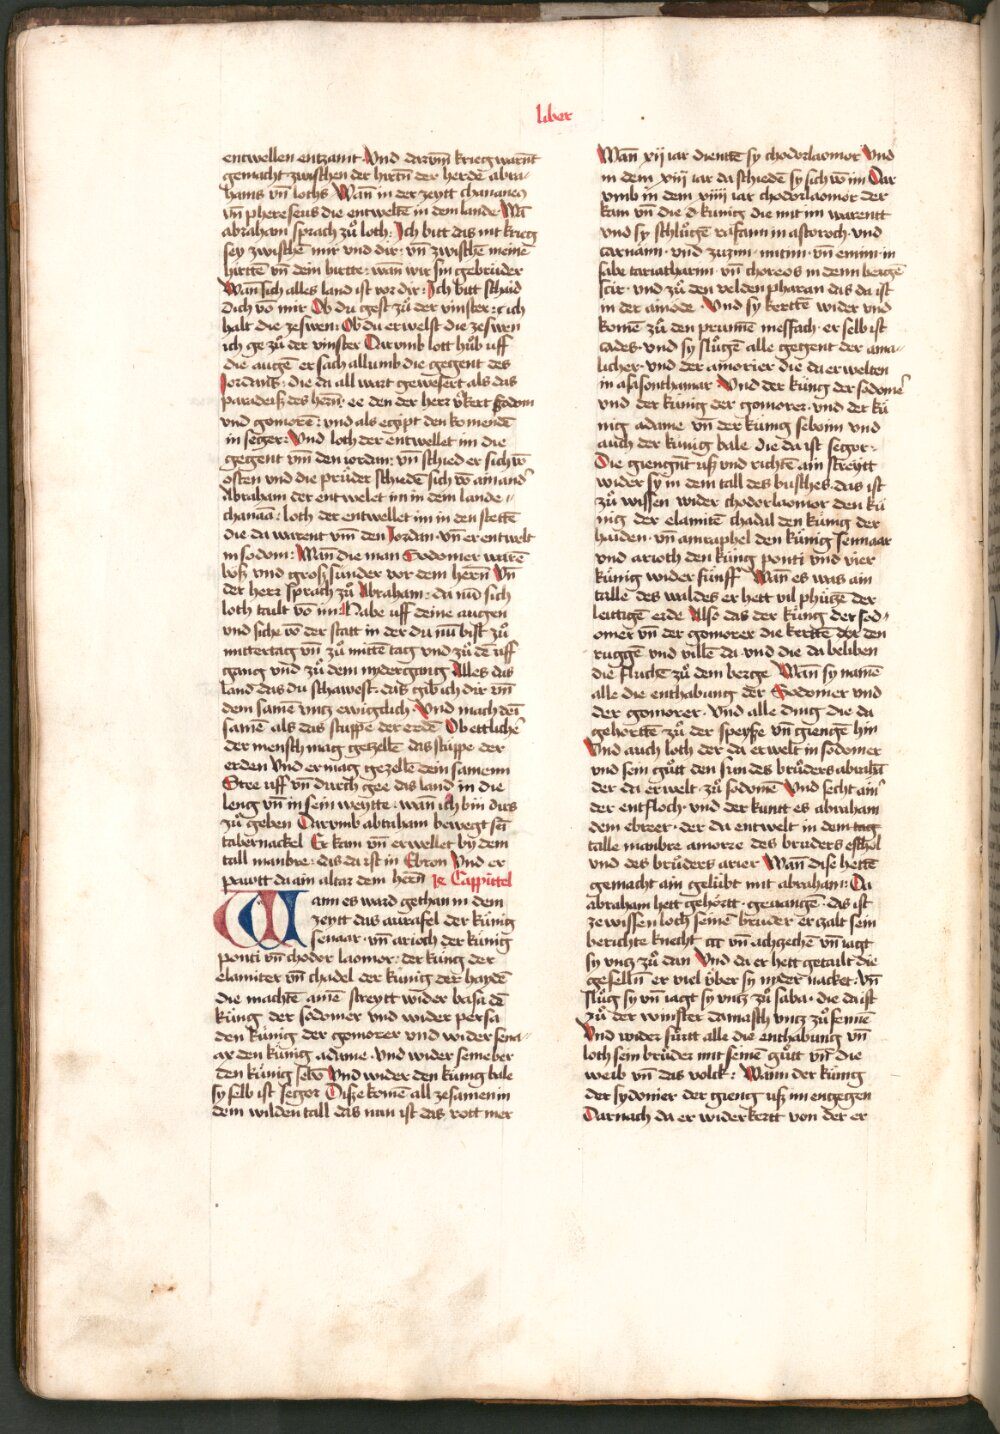 liber
entwellen entzamt Und darum̄ krieg warnt
gemacht zwischen der hirtn̄ der herde abra-
hams vn̄ loths Wan̄ in der zeytt chananeᵒ
vn̄ phereseus die entweltē in dem lande Wā
abraham sprach zů loth: Ich bitt das nit krieg
sey zwischē mir vnd dir· vn̄ zwischē meinē
hirttē vn̄ dein hirtte: wan̄ wir sin gebrüder
Wan̄ sich alles land ist vor dir: Ich bitt schaid
dich vō mir Ob du gest zů der vinster: ich
halt die zeswen: Ob du erwelst die zeswen
ich ge zů der vinster Darumb lott hůb uff
die augē er sach allumb die gegent des
Jordanis: die da all wart gewesert als das
paradeiß des hern̄: ee den der herr v̓kert sodom
vnd gomorē: vnd als egipt den komendē
in seger: Vnd loth der entwellet im die
gegent vm̄ den iordan: vn̄ schied er sich vō
osten vnd die prüder schiedē sich vō ainand̓
Abraham der entwelet im in dem lande
chanaā: loth der entwellet im in den stettē
die da warent vm̄ den Jordan· vn̄ er entwelt
in sodom: Wan̄ die man Sodomer warē
böß vnd groß sünder vor dem hern̄ Vn̄
der herr sprach zů Abraham: da nū sich
loth tailt vō im: Habe uff deine augen
vnd siche vō der statt in der du nū bist zů
mittertag vn̄ zů mitte tag vnd zů dē uff
gang vnd zů dem nydergang Alles das
land das du schawest: das gib ich dir vn̄
dem samē vntz ewigclich· Vnd mach dein̄
samē als das stuppe der erdē Ob ettlicher
der mensch mag gezellē das stuppe der
erden Vnd er mag gezellē dein samenn
Stee uff vn̄ durch gee das land in die
leng vn̄ in sein weytte: wan̄ ich bin dirs
zů geben Darumb abraham bewegt sein̄
tabernackel Er kam vn̄ erwellet by dem
tall manbre: das da ist in Ebron Vnd er
pawtt da ain altar dem hern̄ ix Cappittel
Wann es ward gethan in dem
zeytt das aurafel der künig
senaar· vn̄ arioch der künig
ponti vn̄ chodor laomor: der küng der
elamiter vn̄ chadel der künig der haydē
die machtē ainē streytt wider basa dē
küng der sodomer vnd wider persa
den künig der gomorer vnd wider sena-
ar den künig adame· Vnd wider semeber
den künig sebō Vnd wider den künig bale
sy selb ist segor Disze komē all zesamen in
dem wilden tall das nun ist das rott mer
Wan̄ xij iar dienttē sy chodorlaomor Vnd
in dem xiij iar da schiedē sy sich vō im Dar
vmb in dem xiiij iar chodorlaomor der
kam vn̄ die d künig die mit im warentt
vnd sy schlůgē rafaim in astoroch· vnd
carnaim· vnd zuzim· mitim· vn̄ emim· in
sabe cariatharim· vn̄ choreos in denn bergē
seir· vnd zů den velden pharan das da ist
in der ainode· Vnd sy kerttē wider vnd
komē zů den prunnē messach· er selb ist
cades· vnd sy slůgē alle gegent der ama-
licher· vnd der amorier die da erwelten
in asasonthamar Vnd der küng der sodomer̓
vnd der künig der gomorer· vnd der kü
nig adame vn̄ der künig seboim vnd
auch der künig bale die da ist segor·
Die giengn̄t uß vnd richtē ain streytt
wider sy in dem tall des busches· das ist
zů wissen wider chodorlaomor den kü
nig der elamitē chadal den künig der
haiden· vn̄ amraphel den künig sennaar
vnd arioth den küng ponti vnd vier
künig wider fünff Wan̄ es was ain
talle des waldes er hett vil phützē der
lettigē erde Also das der küng der sod-
omer vn̄ der gomorer die kerttē der den
ruggē vnd villē da vnd die da beliben
die fluchē zů dem berge Wan̄ sy namē
alle die enthabung der Sodomer vnd
der gomorer· Vnd alle ding die da
gehorttē zů der speyße vn̄ giengē hin
Vnd auch loth der da erwelt in sodomer
vnd sein gůtt den sun des brůders abrahā
der da erwelt· zů sodomē Vnd secht ain̓
der entfloch· vnd der kuntt es abraham
dem ebreer· der da entwelt in dem tag
talle manbre amorre des bruders eschol
vnd des brůders arier Wan̄ dise hettē
gemacht ain gelübt mit abraham: Da
abraham hett gehörtt· geuangē· das ist
ze wissen loth seinē bruder er zalt sein
berichte knecht ccc vn̄ achzechē vn̄ iagt
sy vntz zů dan Vnd da er hett getailt die
geselln̄ er viel v̈ber sy nyder nacket: vn̄
slůg sy vn̄ iagt sy vntz zů saba· die da ist
zů der winster damasch vntz zů fenne
Vnd wider fürtt alle die enthabung vn̄
loth sein brüder mit seinē gůtt vn̄ die
weib vn̄ das volck: Wann der künig
der sydomer der gieng uß im engegen
Darnach da er widerkertt von der er